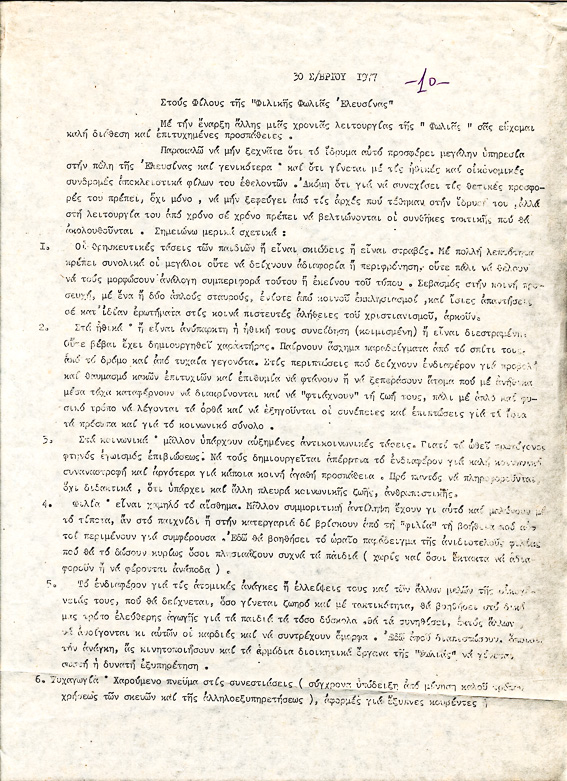 30 Σ/ΒΡΙΟΥ 1977 -10-
Στούς Φίλους τῆς "Φιλικῆς Φωλιᾶς Ἐλευσίνας"
Μέ τήν ἔναρξη ἄλλης μιᾶς χρονιᾶς λειτουργίας τῆς " Φωλιᾶς " σᾶς εὔχομαι
καλή διάθεση καί ἐπιτυχημένες προσπάθειες .
Παρακαλῶ νά μήν ξεχνᾶτε ὅτι τό ἵδρυμα αὐτό προσφέρει μεγάλην ὑπηρεσία
στήν πόλη τῆς Ἐλευσίνας καί γενικώτερα · καί ὅτι γίνεται μέ τίς ἠθικές καί οἰκονομικές
συνδρομές ἀποκλειστικά φίλων του ἐθελοντῶν . Ἀκόμη ὅτι γιά νά συνεχίσει τίς θετικές προσφο-
ρές του πρέπει, ὄχι μόνο , νά μήν ξεφεύγει ἀπό τίς ἀρχές πού τέθηκαν στήν ἵδρυσή του , ἀλλά
στή λειτουργία του ἀπό χρόνο σέ χρόνο πρέπει νά βελτιώνονται οἱ συνθῆκες τακτικῆς πού θά
ἀκολουθοῦνται . Σημειώνω μερικά σχετικά :
1. Οἱ θρησκευτικές τάσεις τῶν παιδιῶν ἤ εἶναι σκιώδεις ἤ εἶναι στραβές. Μέ πολλή λεπτότητα
πρέπει συνολικά οἱ μεγάλοι οὔτε νά δείχνουν ἀδιαφορία ἤ περιφρόνηση, οὔτε πάλι νά θέλουν
νά τούς μορφώσουν ἀνάλογη συμπεριφορά τούτου ἤ ἐκείνου τοῦ τύπου . Σεβασμός στήν κοινή προ-
σευχή, μέ ἕνα ἤ δύο ἁπλούς σταυρούς, ἐνίοτε ἀπό κοινοῦ ἐκκλησιασμοί ,καί ἴσιες ἀπαντήσεις
σέ κατ'ἰδίαν ἐρωτήματα στίς κοινά πιστευτές ἀλήθειες τοῦ χριστιανισμοῦ, ἀρκοῦν.
2. Στά ἠθικά · ἤ εἶναι ἀνύπαρκτη ἡ ἠθική τους συνείδηση (κοιμισμένη) ἤ εἶναι διεστραμένη.
Οὔτε βέβαι ἔχει δημιουργηθεῖ χαρακτήρας. Παίρνουν ἄσχημα παραδείγματα ἀπό τό σπίτι τους
ἀπό τό δρόμο καί ἀπό τυχαῖα γεγονότα. Στίς περιπτώσεις πού δείχνουν ἐνδιαφέρον γιά προβολή
καί θαυμασμό κακῶν ἐπιτυχιῶν καί ἐπιθυμία νά φτάνουν ἤ νά ξεπεράσουν ἄτομα πού μέ ἀνήθικα
μέσα τάχα καταφέρνουν νά διακρίνονται καί νά "φτιάχνουν" τή ζωή τους, πάλι μέ ἁπλό καί φυ-
σικό τρόπο νά λέγονται τά ὀρθά καί νά ἐξηγοῦνται οἱ συνέπειες καί ἐπιπτώσεις γιά τά ἴδια
τά πρόσωπα καί γιά τό κοινωνικό σύνολο .
3. Στά κοινωνικά · μᾶλλον ὑπάρχουν αὐξημένες ἀντικοινωνικές τάσεις. Γιατί τά ὠθεῖ πρωτόγονος
φτηνός ἐγωισμός ἐπιβιώσεως. Νά τούς δημιουργεῖται ἀπέρριττα τό ἐνδιαφέρον γιά καλή κοινωνική
συναναστροφή καί ἀργότερα γιά κάποια κοινή ἀγαθή προσπάθεια . Πρό παντός νά πληροφοροῦνται,
ὄχι διδακτικά , ὅτι ὑπάρχει καί ἄλλη πλευρά κοινωνικῆς ζωῆς, ἀνθρωπιστικῆς.
4. Φιλία · εἶναι χαμηλό τό αἴσθημα. Μᾶλλον συμμοριτική ἀντίληψη ἔχουν γι αὐτό καί μαλώνουν μέ
τό τίποτα, ἄν στό παιχνίδι ἤ στήν κατεργαριά δέ βρίσκουν ἀπό τή "φιλία" τή βοήθεια πού αὐ-
τοί περιμένουν γιά συμφέρουσα . Ἐδῶ θά βοηθήσει τό ὡραῖο παράδειγμα τῆς ἀνιδιοτελοῦς φιλίας
πού θά τό δώσουν κυρίως ὅσοι πλησιάζουν συχνά τά παιδιά ( χωρίς καί ὅσοι ἔκτακτα νά ἀδια-
φοροῦν ἤ νά φέρονται ἀνάποδα ) .
5. Τό ἐνδιαφέρον γιά τίς ἀτομικές ἀνάγκες ἤ ἐλλείψεις τους καί τῶν ἄλλων μελῶν τῆς οἰκογέ-
νειάς τους, πού θά δείχνεται, ὅσο γίνεται ζωηρό καί μέ τακτικότητα, θά βοηθήσει στό δικό
μας τρόπο ἐλεύθερης ἀγωγῆς γιά τά παιδιά τά τόσο δύσκολα .Θά τά συνηθίσει, ἐκτός ἄλλων
νά ἀνοίγονται κι αὐτῶν οἱ καρδιές καί νά συντρέχουν ὄμορφα . Ἐδῶ ἀφοῦ διαπιστώσουν
τήν ἀνάγκη, ἄς κινητοποιήσουν καί τά ἁρμόδια διοικητικά ὄργανα τῆς "Φωλιᾶς" νά γίνεται
σωστή ἤ δυνατή ἐξυπηρέτηση .
6. Ψυχαγωγία · Χαρούμενο πνεῦμα στίς συνεστιάσεις ( σύγχρονα ὑπόδειξη ἀπό μίμηση καλοῦ τρόπου
χρήσεως τῶν σκευῶν καί τῆς ἀλληλοεξυπηρετήσεως ), ἀφορμές γιά ἔξυπνες κουβέντες ἤ